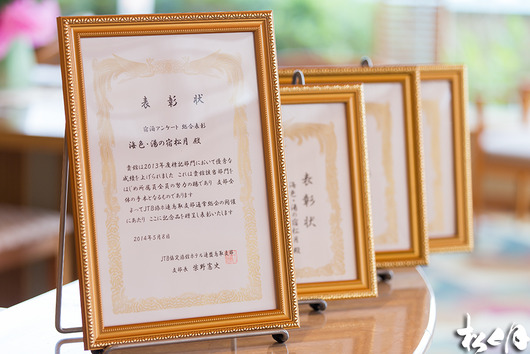 表彰状
宿泊アンケート 総合表彰
海色・湯の宿松月 殿
貴館は2013年度標記部門において優秀な
成績を上げられました これは貴館担当部門を
はじめ所属員全員の努力の賜であり 支部全
体の手本となるものであります
よってJTB協定旅館ホテル連盟鳥取支部通常総会の開催
にあたり ここに記念品を贈呈し表彰いたします
2014年5月8日
JTB協定旅館ホテル連盟鳥取支部
支部長 柴野憲史
表彰状
海色・湯の宿松月 殿
松月